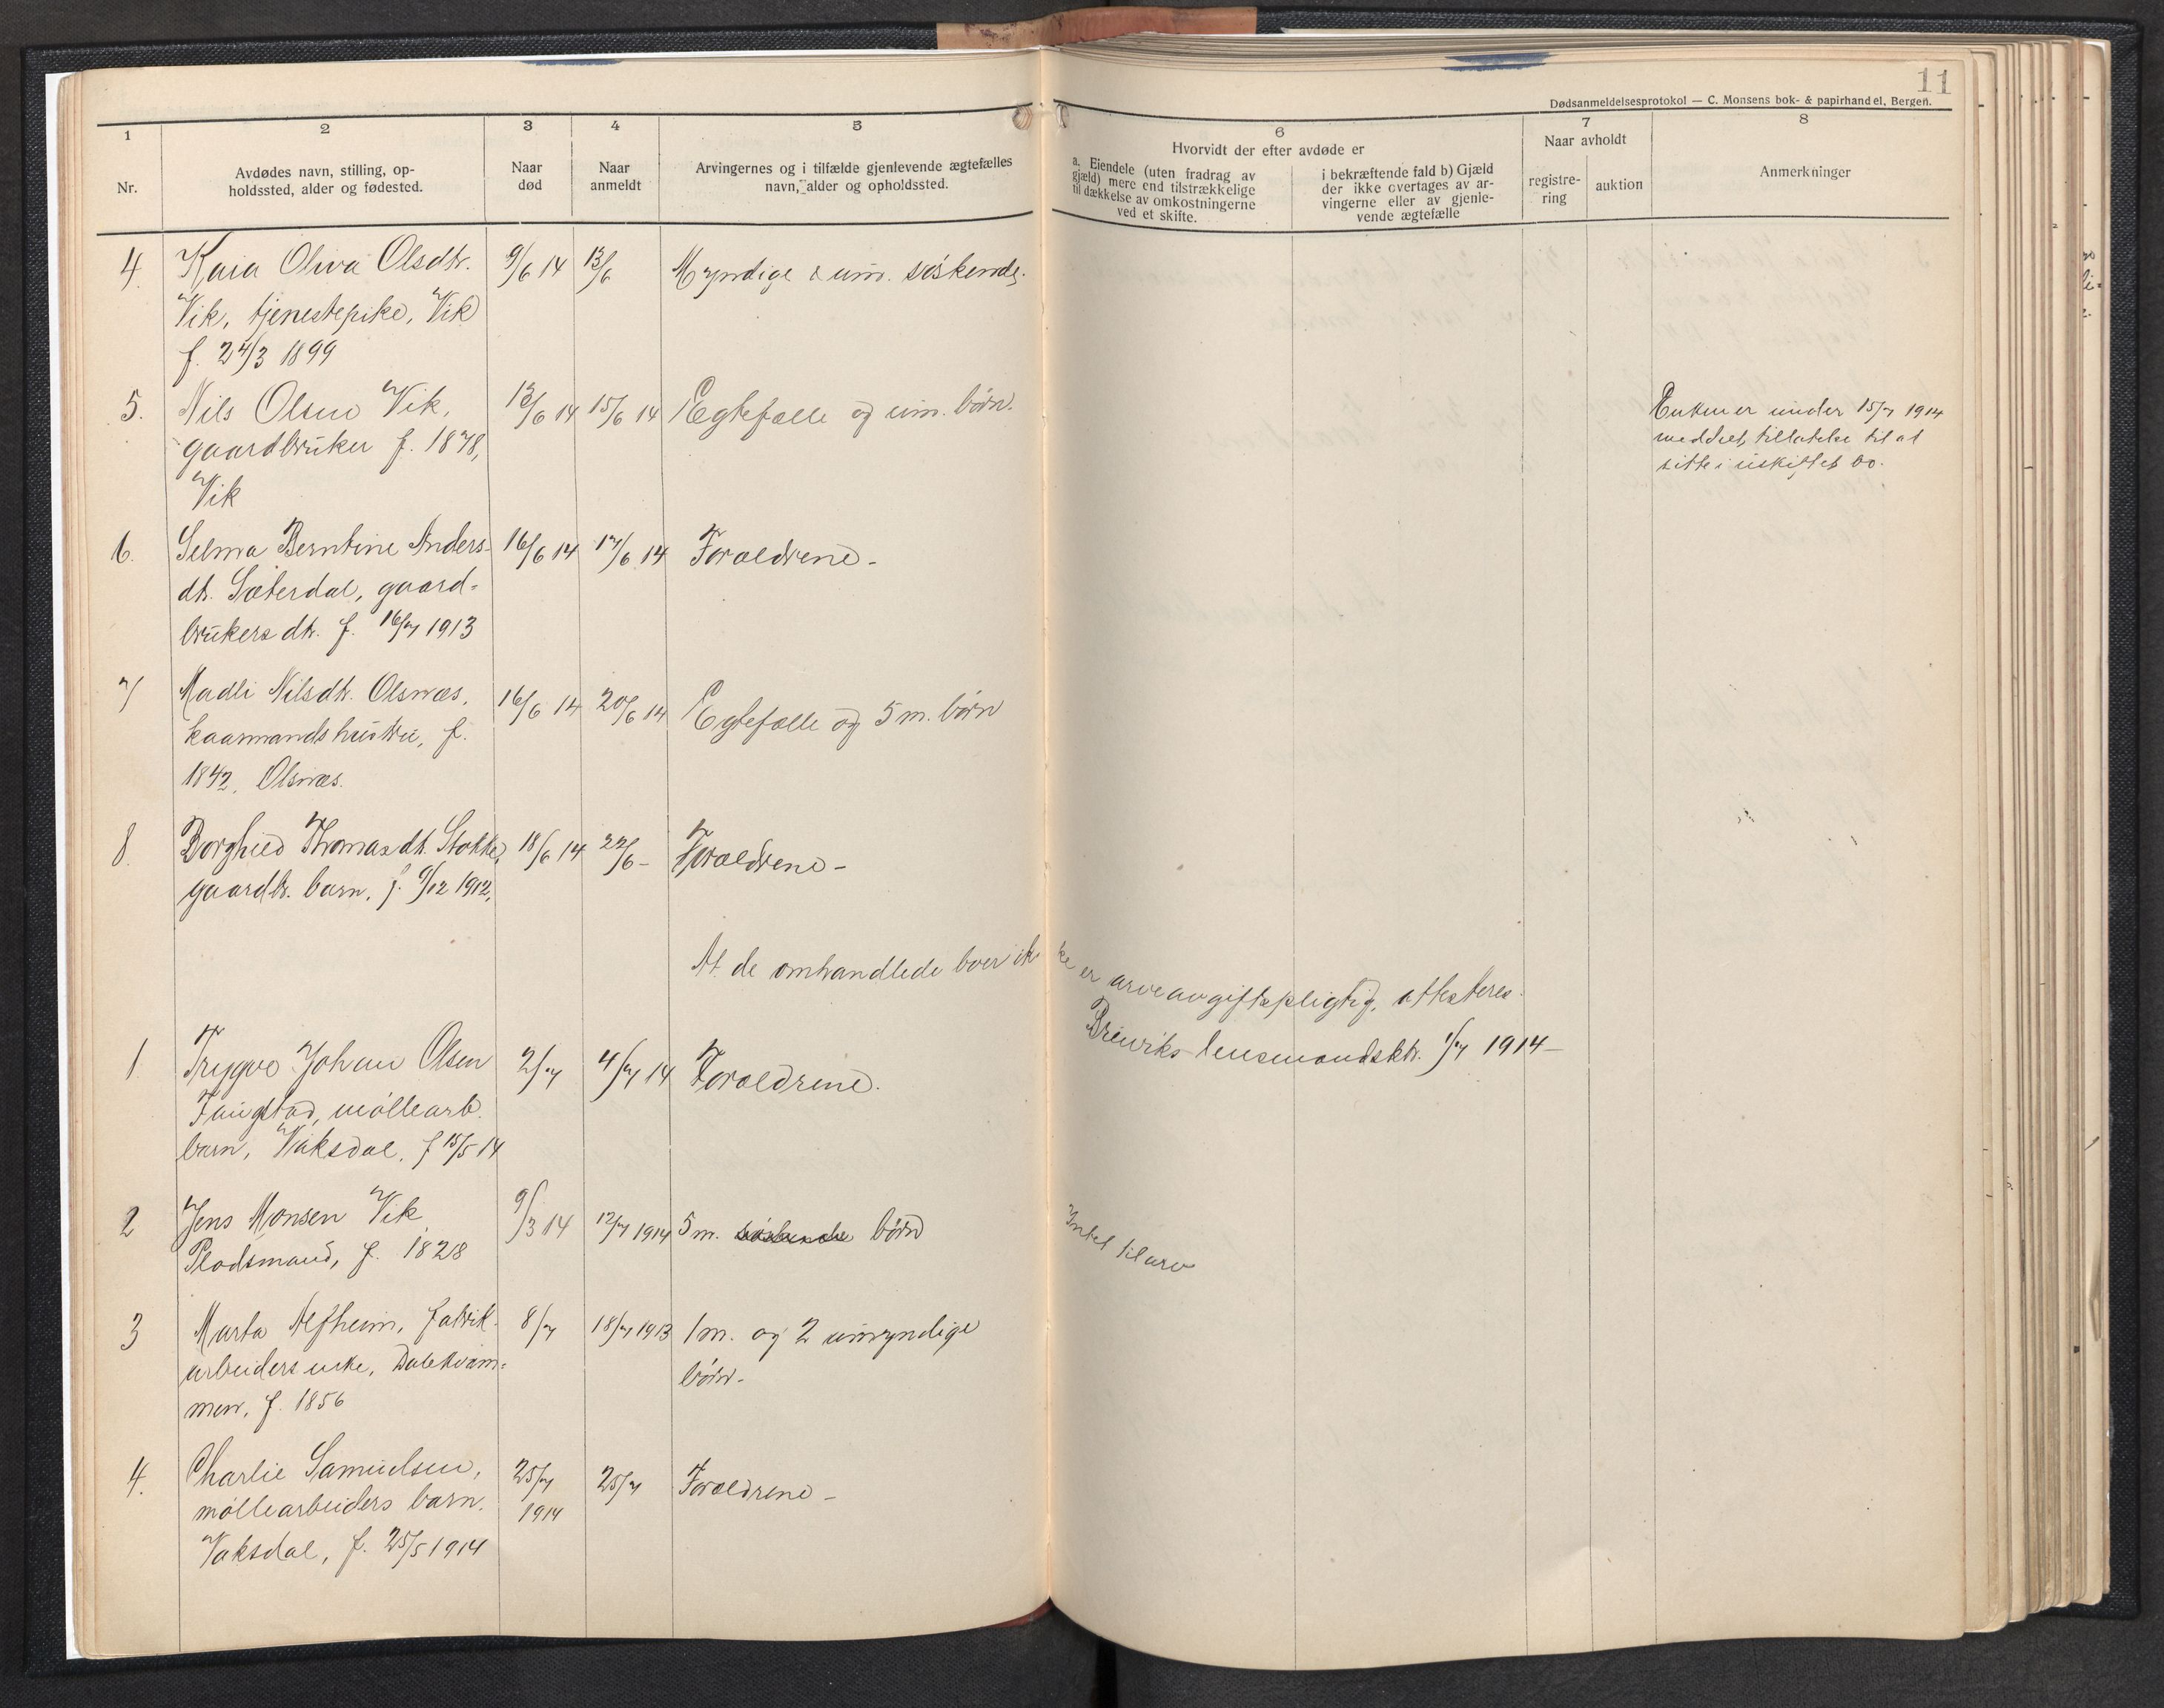 11
Dødsanmeldelsesprotokol — C. Monsens bok- & papirhandel, Bergen.
1
Nr.
2
Avdødes navn, stilling, op-
holdssted, alder og fødested.
3
Naar
død
4
Naar
anmeldt
5
Arvingernes og i tilfælde gjenlevende ægtefælles
navn, alder og opholdssted.
6
Hvorvidt der efter avdøde er
a. Eiendele (uten fradrag av
gjæld) mere end tilstrækkelige
til dækkelse av omkostningerne
ved et skifte.
i bekræftende fald b) Gjæld
der ikke overtages av ar-
vingerne eller av gjenle-
vende ægtefælle
7
Naar avholdt
registre-
ring
auktion
8
Anmerkninger
4. Kaia Oliva Olsdtr. 9/6 14 13/6 Myndige & um. søskende.
Vik, tjenestepike, Vik
f. 24/3 1899
5. Nils Olsen Vik, 13/6 14 15/6 14 Egtefælle og um. børn.
gaardbruker f. 1878,
Vik
Enken er under 15/7 1914
meddelt tillatelse til at
sitte i uskiftet bo.
6. Selma Berntine Anders- 16/6 14 17/6 14 Forældrene -
dtr. Sæterdal, gaard-
brukers dtr. f. 16/7 1913
7 Madli Nilsdtr. Olsnæs, 16/6 14 20/6 14 Egtefælle og 5 m. børn
kaarmandshustru, f.
1842, Olsnæs.
8. Borghild Thomasdtr. Stokke, 18/6 14 22/6 - Forældrene -
gaardbr. barn, f. 9/12 1912,
At de omhandlede boer ikke er arveavgiftspligtig, attesteres.
Breiviks lensmandsktr. 1/7 1914 -
1 Trygve Johan Olsen 2/7 4/7 14 Forældrene.
møllearb.
barn, Vaksdal, f 15/5 14
2 Jens Monsen Vik 9/3 14 12/7 1914 5 m. søskende børn Intet til arv
Pladsmand, f. 1828
3 Marta Alfheim, fabrik- 8/7 18/7 1913 1 m. og 2 umyndige
arbeiders enke, Dalekvam- børn -
men, f. 1856
4. Charlie Samuelsen, 25/7 25/7 Forældrene -
møllearbeiders barn. 1914
Vaksdal, f. 25/5 1914